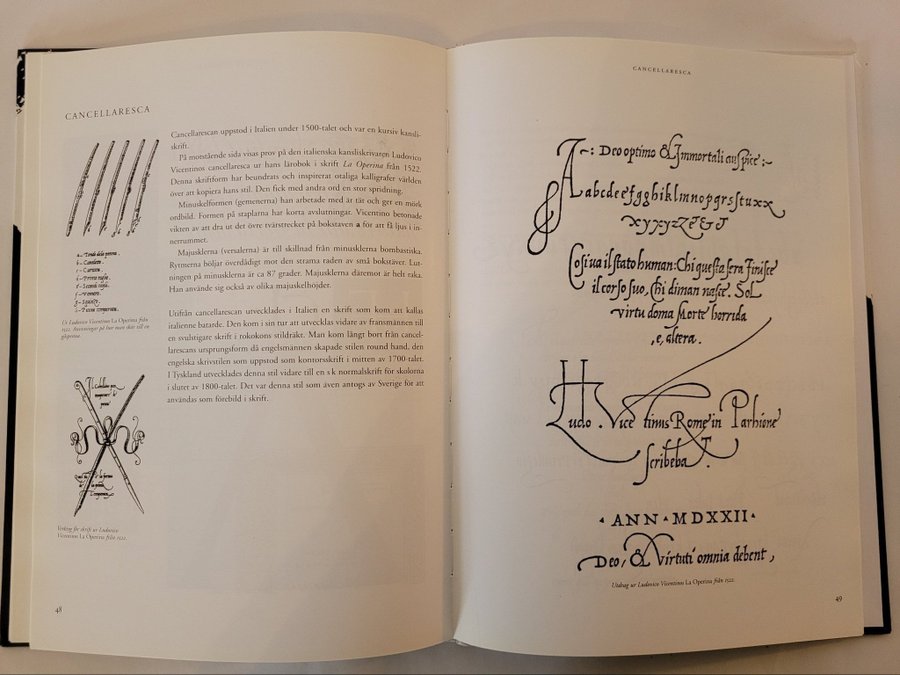 CANCELLARESCA
Cancellarescan uppstod i Italien under 1500-talet och var en kursiv kansli-
skrift.
På motstående sida visas prov på den italienska kansliskrivaren Ludovico
Vicentinos cancellaresca ur hans lärobok i skrift La Operina från 1522.
Denna skriftform har beundrats och inspirerat otaliga kalligrafer världen
över att kopiera hans stil. Den fick med andra ord en stor spridning.
Minuskelformen (gemenerna) han arbetade med är tät och ger en jämn
ordbild. Formen på staplarna har korta avslutningar. Vicentino betonade
vikten av att dra ut det övre tvärstrecket på bokstaven a för att få ljus i in-
nerrummet.
Majusklerna (versalerna) är till skillnad från minusklerna bombastiska.
Rytmerna böljar överdådigt mot den strama raden av små bokstäver. Lut-
ningen på minusklerna är ca 87 grader. Majusklerna däremot är helt raka.
Han använde sig också av olika majuskelhöjder.
Utifrån cancellarescan utvecklades i Italien en skrift som kom att kallas
italienne batarde. Den kom i sin tur att utvecklas vidare av fransmännen till
en svulstigare skrift i rokokons stildräkt. Man kom långt bort från cancel-
larescans ursprungsform då engelsmännen skapade stilen round hand, den
engelska skrivstilen som uppstod som kontorsskrift i mitten av 1700-talet.
I Tyskland utvecklades denna stil vidare till en s k normalskrift för skolorna
i slutet av 1800-talet. Det var denna stil som även antogs av Sverige för att
användas som förebild i skrift.
Ur Ludovico Vicentinos La Operina från
1522. Anvisningar på hur man skär till en
gåspenna.
Verktyg för skrift ur Ludovico
Vicentinos La Operina från 1522.
48
CANCELLARESCA
A~: Deo optimo & Immortali auspice :~
A abcdeefgghiklmnopqrsstuxx
xyxyzZ&&
Cosi va il stato human: Chi questa sera finisce
il corso suo, Chi diman nasce. Sol
virtu doma Morte horrida
,e, altera.
Ludo. Vicentinus Rome in Parhione
scribebaT.
ANN MDXXII
Deo, & Virtuti omnia debent,
Utdrag ur Ludovico Vicentinos La Operina från 1522.
49